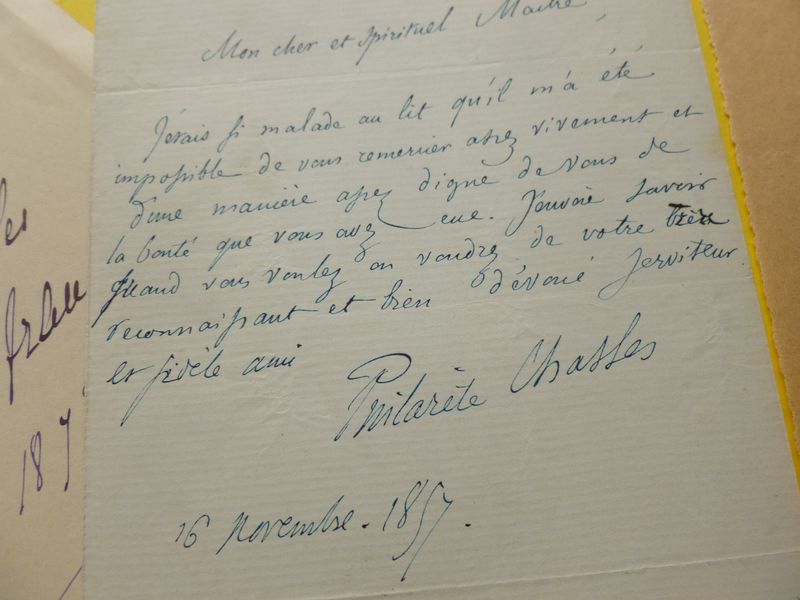 Mon cher et spirituel Maitre,
J'étais si malade au lit qu'il m'a été
impossible de vous remercier assez vivement et
d'une manière assez digne de vous de
la bonté que vous avez eue. J'envoie savoir
quand vous voulez ou voudrez de votre très
reconnaissant et bien dévoué serviteur
et fidèle ami
Philarète Chasles
16 novembre. 1857.
187